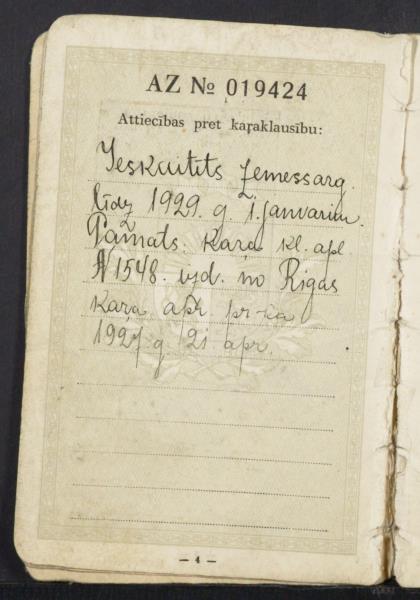 AZ № 019424
Attiecības pret kaŗaklausību:
Ieskaitīts zemessarg.
līdz 1929. g. 1. janvarim.
Pamats: Kaŗa kl. apl.
№ 1548. izd. no Rīgas
kaŗa apr. pr-ka
1927 g. 21 apr.
– 4 –